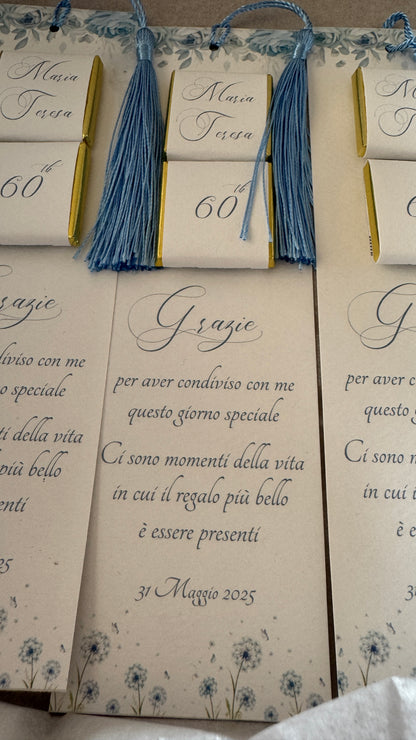 Maria
Teresa
60th
Grazie
per aver condiviso con me
questo giorno speciale
Ci sono momenti della vita
in cui il regalo più bello
è essere presenti
31 Maggio 2025
Maria
Teresa
60th
razie
ndiviso con me
no speciale
ti della vita
più bello
enti
25
Maria
Teresa
6
G
per aver c
questo g
Ci sono m
in cui i
è e
3